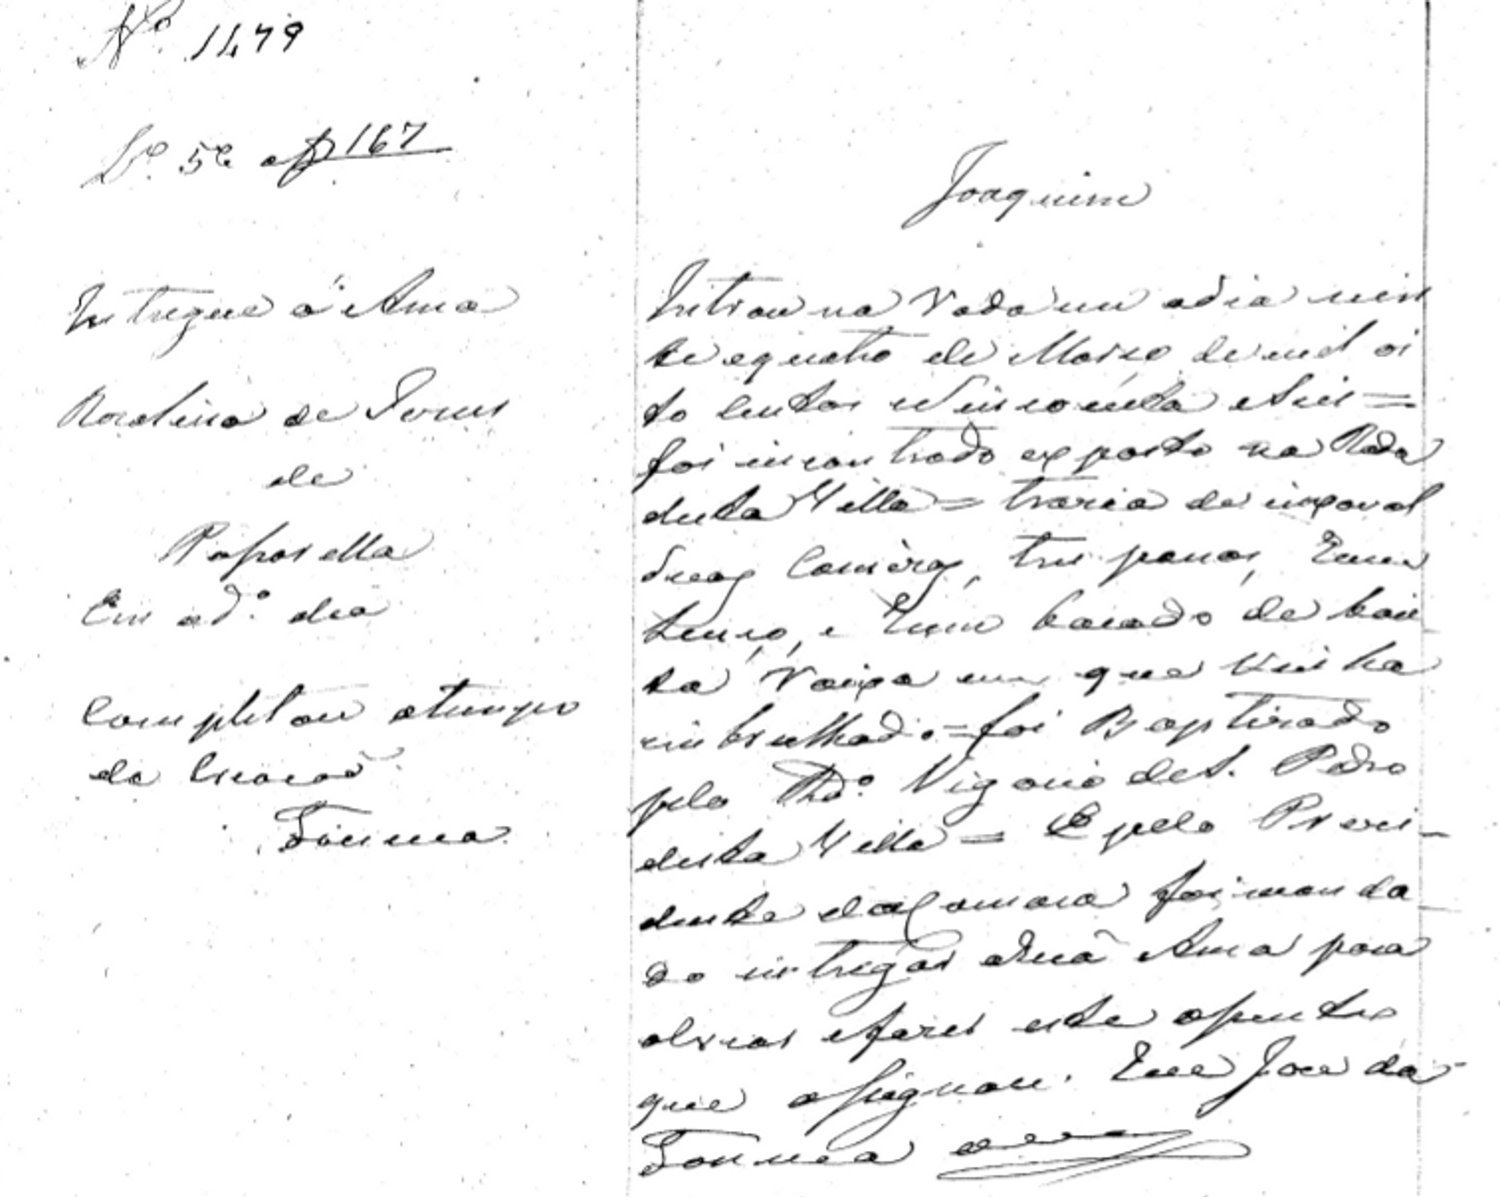 Nº 1479
Lº 5º af 167
Intregue á Ama
de
Em o dº dia
Completou o tempo
da Creacaõ
Fonseca
Joaquim
Introu na Roda em o dia vin
te e quatro de Março de mil oi
to centos e Sincoenta e Seis =
foi incontrado exposto na Roda
desta Villa = trazia de inxoval
duas Camizas, tres panos, Hum
lenço, e Hum bocado de bae
ta Roixa em que vinha
embrulhado = foi Baptizado
pelo Rdº Vigario de S. Pedro
desta Villa = E pelo Prezi-
dente da Camara foi manda-
do intregar a huã Ama para
o criar e fazer este asento
que asignou. Eu Joze da
Fonseca